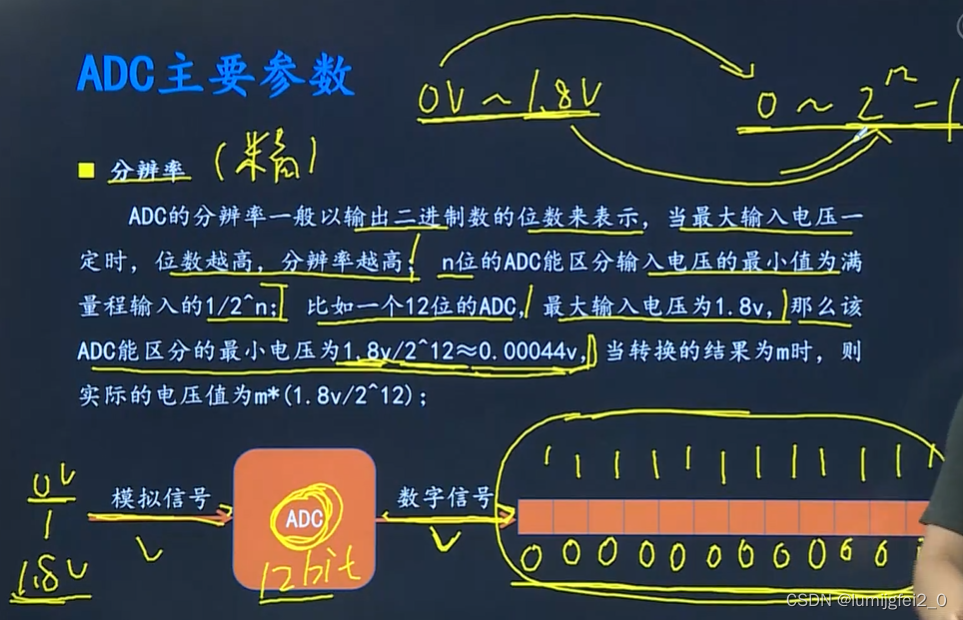 ADC主要参数
0V ~ 1.8V
0 ~ 2^n-1
分辨率 (精高)
ADC的分辨率一般以输出二进制数的位数来表示，当最大输入电压一
定时，位数越高，分辨率越高；n位的ADC能区分输入电压的最小值为满
量程输入的1/2^n；比如一个12位的ADC，最大输入电压为1.8v，那么该
ADC能区分的最小电压为1.8v/2^12≈0.00044v，当转换的结果为m时，则
实际的电压值为m*(1.8v/2^12)；
0V
1.8V
模拟信号
ADC
12bit
数字信号
1 1 1 1 1 1 1 1 1 1 1 1
0 0 0 0 0 0 0 0 0 0 0
CSDN @lumijgfei2_0